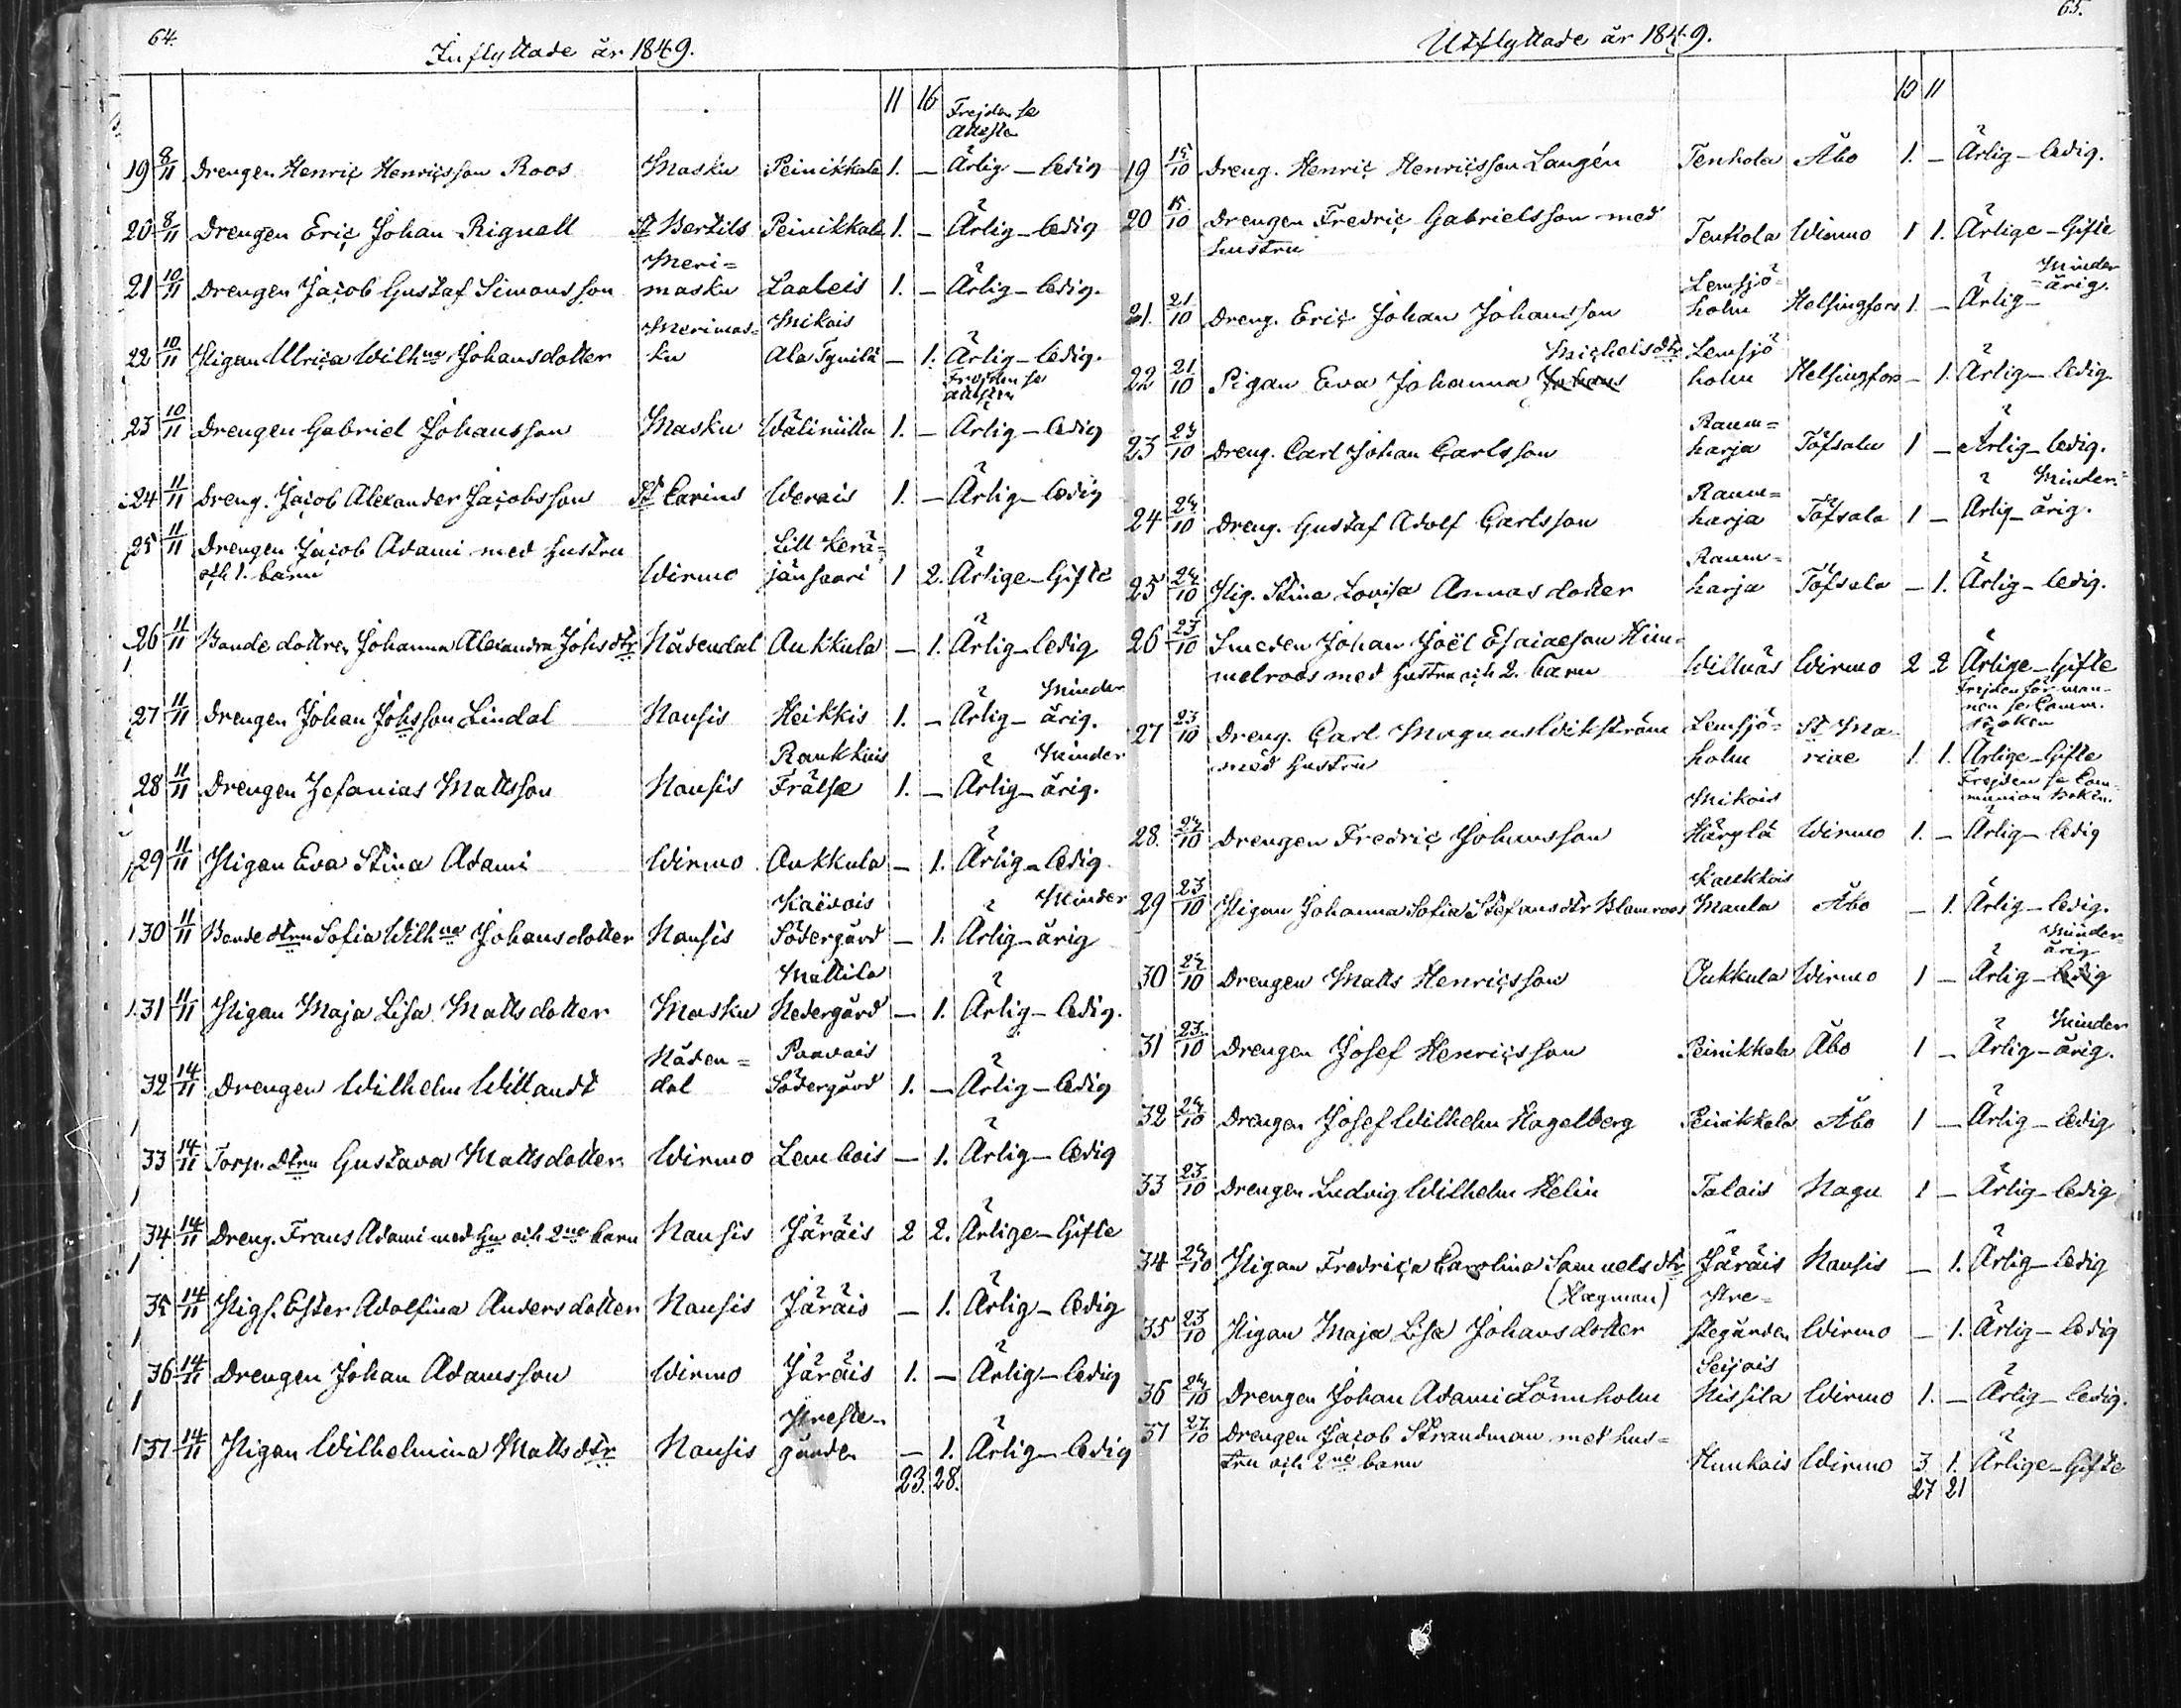 64.
Inflyttade år 1849.
11 16 Frejden se
attesten
19 8/11 Drengen Henric Henricsson Roos Masku Peinikkala 1. — Ärlig — ledig
20 8/11 Drengen Eric Johan Rignell St Bertils Peinikkala 1. — Ärlig — ledig
Meri=
21 10/11 Drengen Jacob Gustaf Simonsson masku Laaleis 1. — Ärlig — ledig.
Merimas= Mikois
22 10/11 Pigan Ulrica Wilhna Johansdotter ku Ala Tynilä — 1. Ärlig — ledig.
Frejden se
attesten
23 10/11 Drengen Gabriel Johansson Masku Wälinüttu 1. — Ärlig — ledig
24 11/11 Dreng. Jacob Alexander Jacobsson St Carins Werais 1. — Ärlig — ledig
25 11/11 Drengen Jacob Adami med hustru Lill Kerä=
och 1. barn Wirmo jänsaari 1 2. Ärlige — Gifte
26 11/11 Bonde dottren Johanna Alexandra Johsdtr Nådendal Aukkula — 1. Ärlig — ledig
Minder
27 11/11 Drengen Johan Johsson Lindal Nousis Heikkis 1. — Ärlig — årig.
Raukkais Minder
28 11/11 Drengen Zefanias Mattsson Nousis Frälse 1. — Ärlig — årig.
29 11/11 Pigan Eva Stina Adami Wirmo Aukkula — 1. Ärlig — ledig.
Kaivois Minder
30 11/11 Bonde dtren Sofia Wilhna Johansdotter Nousis Södergård — 1. Ärlig — årig
Mattila
31 11/11 Pigan Maja Lisa Mattsdotter Masku Nedergård — 1. Ärlig — ledig.
Nåden= Paavais
32 14/11 Drengen Wilhelm Willandt dal Södergård 1. — Ärlig — ledig
33 14/11 Torp. dtren Gustava Mattsdotter Wirmo Lembois — 1. Ärlig — ledig
34 14/11 Dreng. Frans Adami med hu och 2ne barn Nousis Järäis 2 2. Ärlige — Gifte
35 14/11 Pigs. Ester Adolfina Andersdotter Nousis Järäis — 1. Ärlig — ledig
36 14/11 Drengen Johan Adamsson Wirmo Järäis 1. — Ärlig — ledig
Preste-
37 14/11 Pigan Wilhelmina Mattsdtr Nousis gården — 1. Ärlig — ledig
23. 28.
65.
Utflyttade år 1849.
10 11
19 15/10 Dreng. Henric Henricsson Langén Tenhola Åbo 1. — Ärlig — ledig.
20 15/10 Drengen Fredric Gabrielsson med
hustru Tenhola Wirmo 1 1. Ärlige — Gifte
Lemsjö= Minder
21. 21/10 Dreng. Eric Johan Johansson holm Helsingfors 1 — Ärlig — =årig.
Michelsdtr Lemsjö
22 21/10 Pigan Eva Johanna Johans holm Helsingfors — 1. Ärlig — ledig
Raum=
23 23/10 Dreng. Carl Johan Carlsson harja Töfsala 1 — Ärlig — ledig.
Raum= Minder=
24 24/10 Dreng. Gustaf Adolf Carlsson harja Töfsala 1 — Ärlig — årig.
Raum=
25 24/10 Pig. Stina Lovisa Annasdotter harja Töfsala — 1. Ärlig — ledig.
26 23/10 Smeden Johan Joël Esaiaeson Him=
melroos med hustru och 2. barn Willnäs Wirmo 2 2 Ärlige — Gifte
Frejden för man-
nen se Comm.
boken
27 23/10 Dreng. Carl Magnus Wikström Lemsjö= St Ma
med hustru holm riae 1. 1. Ärlige — Gifte
Frejden se Com-
munion boken.
Mikois
28. 24/10 Drengen Fredric Johansson Härplä Wirmo 1. — Ärlig — ledig
Kaukkois
29 23/10 Pigan Johanna Sofia Stefansdtr Blomroos Maula Åbo — 1. Ärlig — ledig.
Minder=
årig
30 24/10 Drengen Matts Henricsson Aukkula Wirmo 1 — Ärlig — ledig
Minder
31 23/10 Drengen Josef Henricsson Peinikkala Åbo 1 — Ärlig — årig.
32 24/10 Drengen Josef Wilhelm Hagelberg Peinikkala Åbo 1 — Ärlig — ledig
33 23/10 Drengen Ludvig Wilhelm Helin Talois Nagu 1 — Ärlig — ledig
34 24/10 Pigan Fredrica Carolina Samuelsdtr Järäis Nousis — 1. Ärlig — ledig
(Hagman) Pre=
35 23/10 Pigan Maja Lisa Johansdotter stegården Wirmo — 1. Ärlig — ledig
Seijais
36 24/10 Drengen Johan Adami Lönnholm Nissila Wirmo 1. — Ärlig — ledig.
37 27/10 Drengen Jacob Strandman med hus=
tru och 2ne barn Hunkois Wirmo 3 1. Ärlige — Gifte
27 21